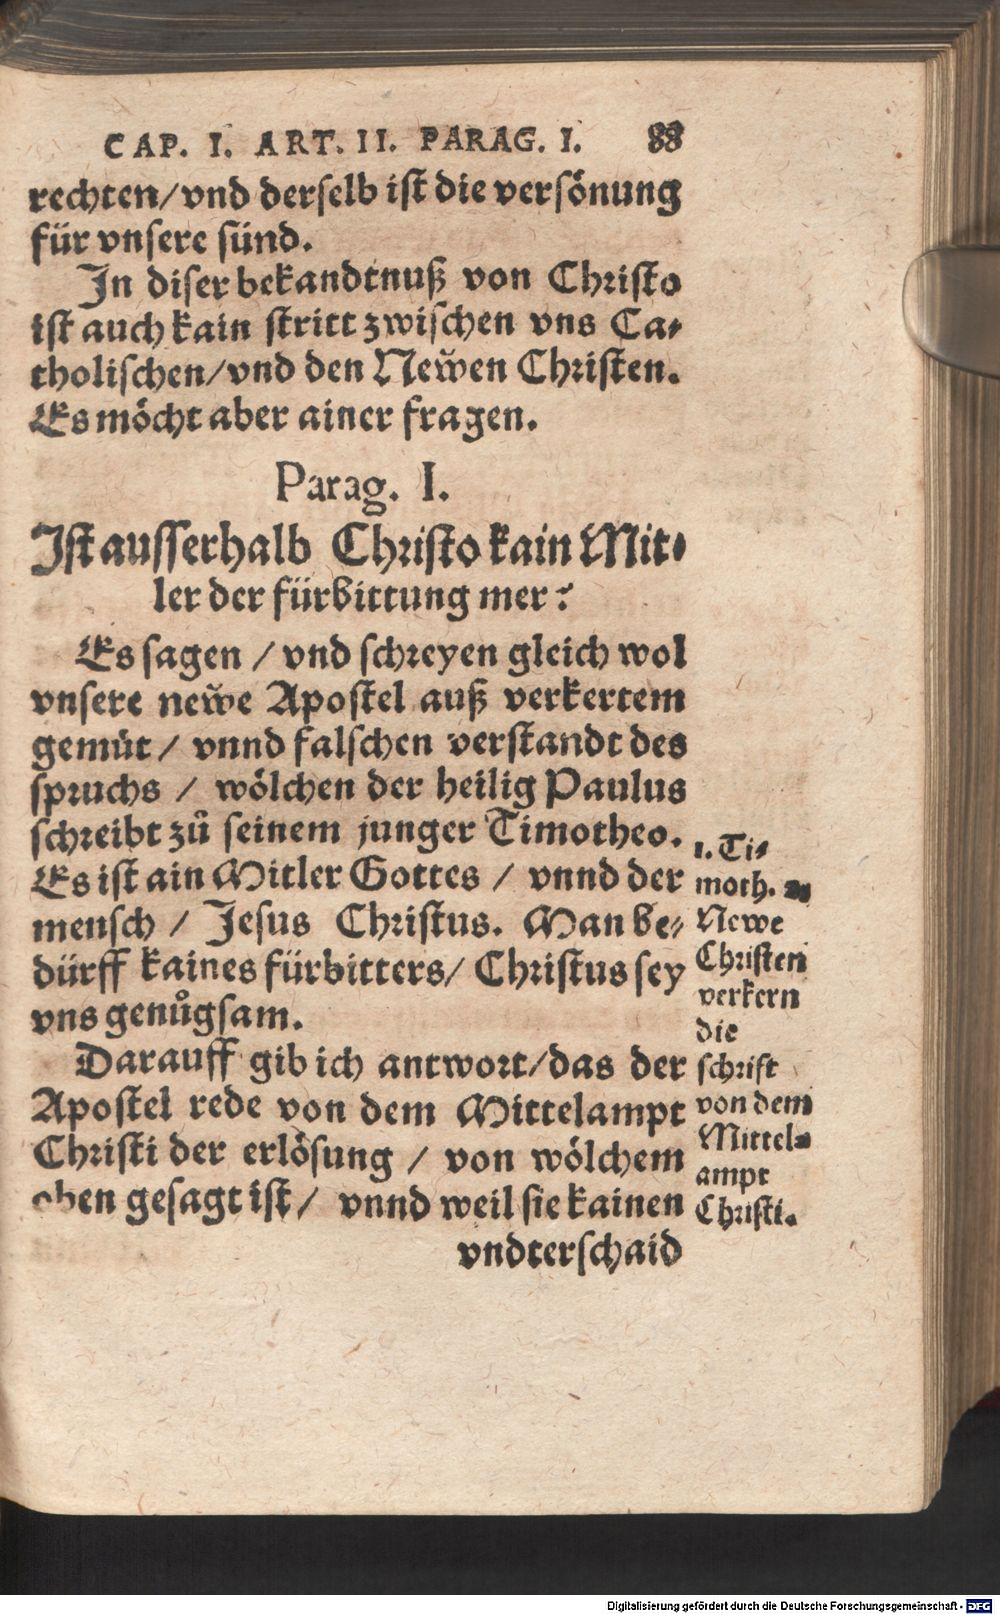 CAP. I. ART. II. PARAG. I. 88
rechten/vnd derselb ist die versönung
für vnsere sünd.
In diser bekandtnuß von Christo
ist auch kain stritt zwischen vns Ca-
tholischen/vnd den Newen Christen.
Es möcht aber ainer fragen.
Parag. I.
Ist ausserhalb Christo kain Mit-
ler der fürbittung mer?
Es sagen / vnd schreyen gleich wol
vnsere newe Apostel auß verkertem
gemüt / vnnd falschen verstandt des
spruchs / wölchen der heilig Paulus
schreibt zů seinem junger Timotheo.
Es ist ain Mitler Gottes / vnnd der
mensch / Jesus Christus. Man be-
dürff kaines fürbitters/ Christus sey
vns genůgsam.
Darauff gib ich antwort/das der
Apostel rede von dem Mittelampt
Christi der erlösung / von wölchem
oben gesagt ist / vnnd weil sie kainen
vndterschaid
1. Ti-
moth. 2.
Newe
Christen
verkern
die
schrift
von dem
Mittel-
ampt
Christi.
Digitalisierung gefördert durch die Deutsche Forschungsgemeinschaft - DFG